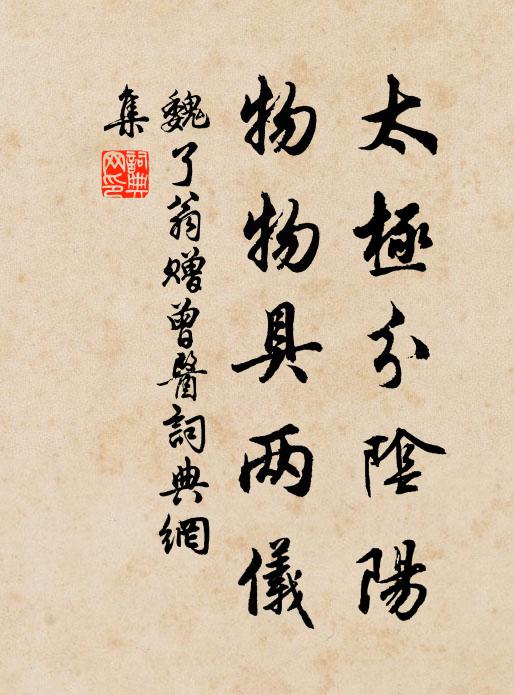 太極分陰陽
物物具两儀
魏了翁贈曾醫詞典網
集
詞典
网印